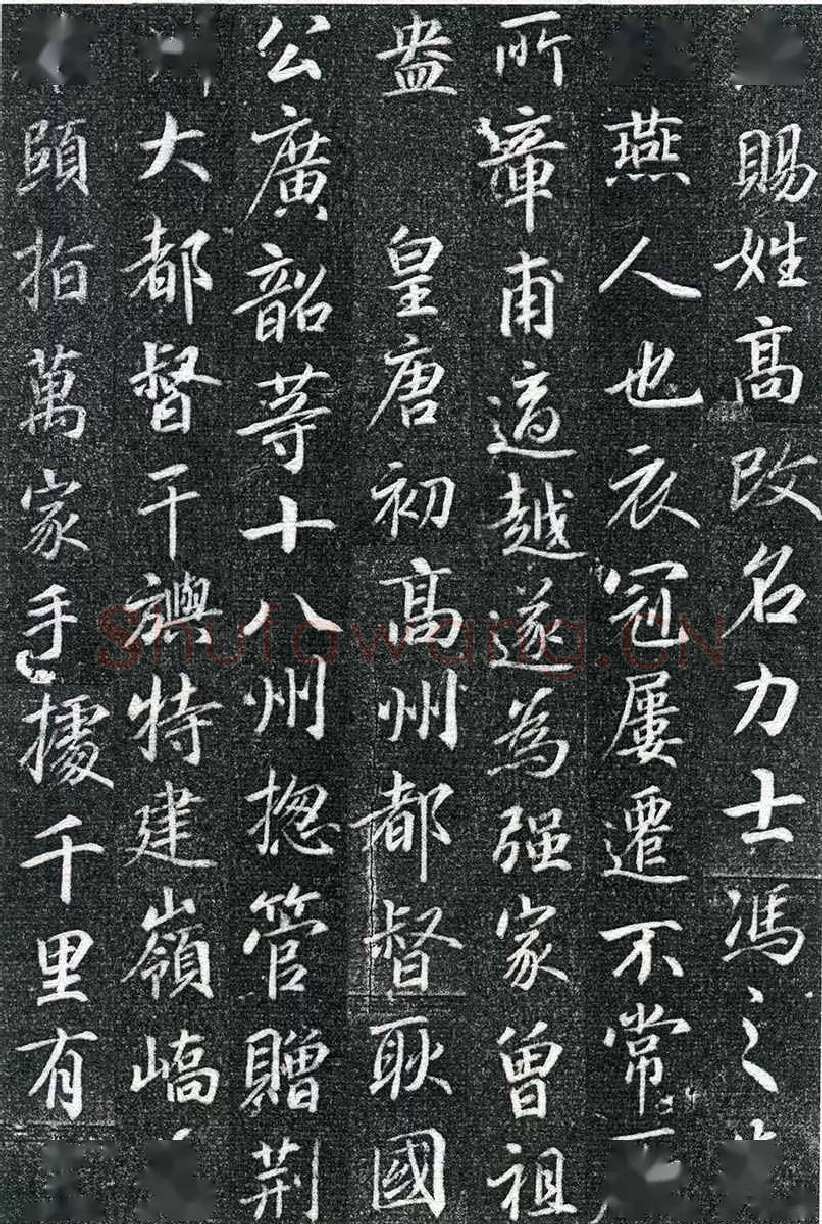 賜姓高改名力士馮之
燕人也衣冠屢遷不常
所章甫適越遂為强家曾祖
盎 皇唐初高州都督耿國
公廣韶等十八州揔管贈荆
大都督干旟特建嶺嶠
頤指萬家手據千里有
Shufawang.CN